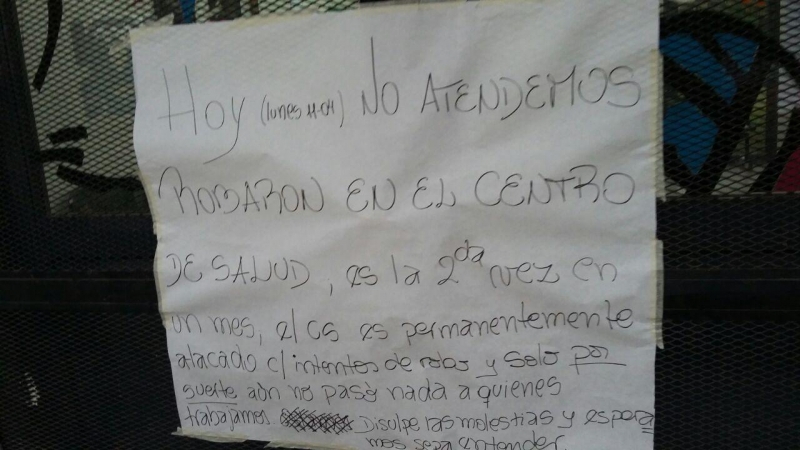 Hoy (lunes 11-04) NO ATENDEMOS
ROBARON EN EL CENTRO
DE SALUD, es la 2da vez en
un mes, el cs es permanentemente
atacado c/ intentos de robos y solo por
suerte aún no pasó nada a quienes
trabajamos. Disulpe las molestias y espera
mos sepa entender.